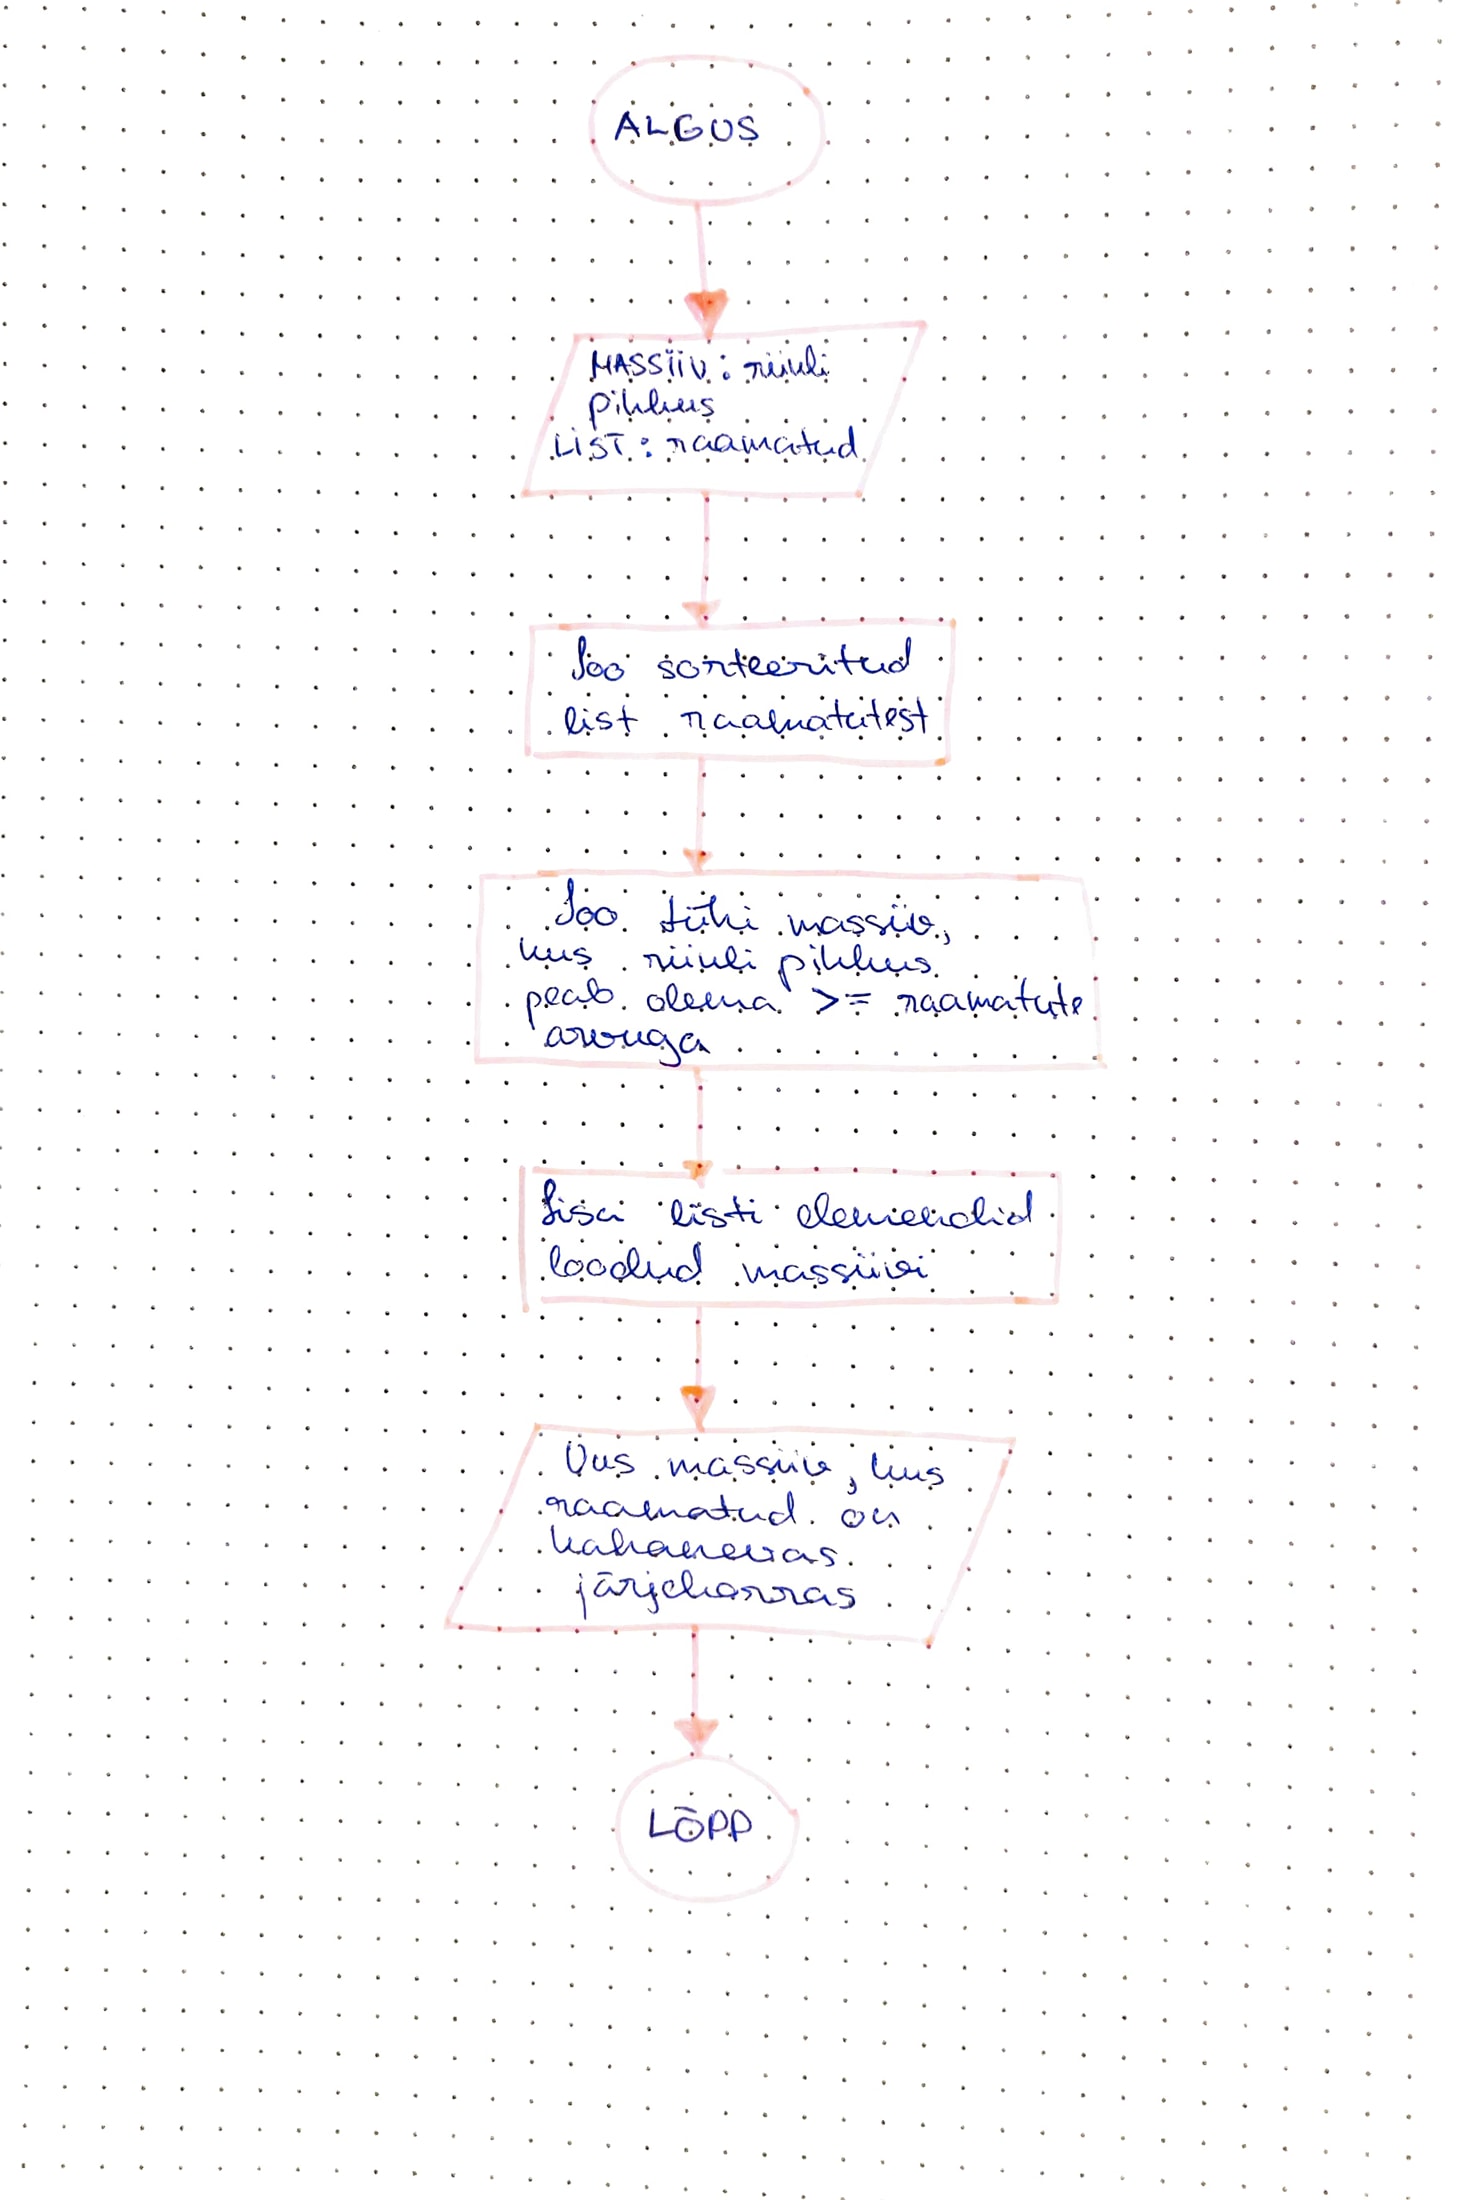 ALGUS
MASSIIV: riiuli
pikkus
LIST: raamatud
Loo sorteeritud
list raamatutest
Loo tühi massiiv,
kus riiuli pikkus
peab olema >= raamatute
arvuga
Lisa listi elemendid
loodud massiivi
Uus massiiv, kus
raamatud on
kahanevas
järjekorras
LÕPP